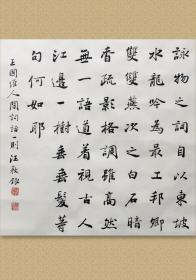 詠物之詞自以東坡
水龍吟為最工邦卿
雙雙燕次之白石暗
香疏影格調雖高然
無一語道着視古人
江邊一樹垂垂髮等
句何如耶
王國維人間詞話一則汪